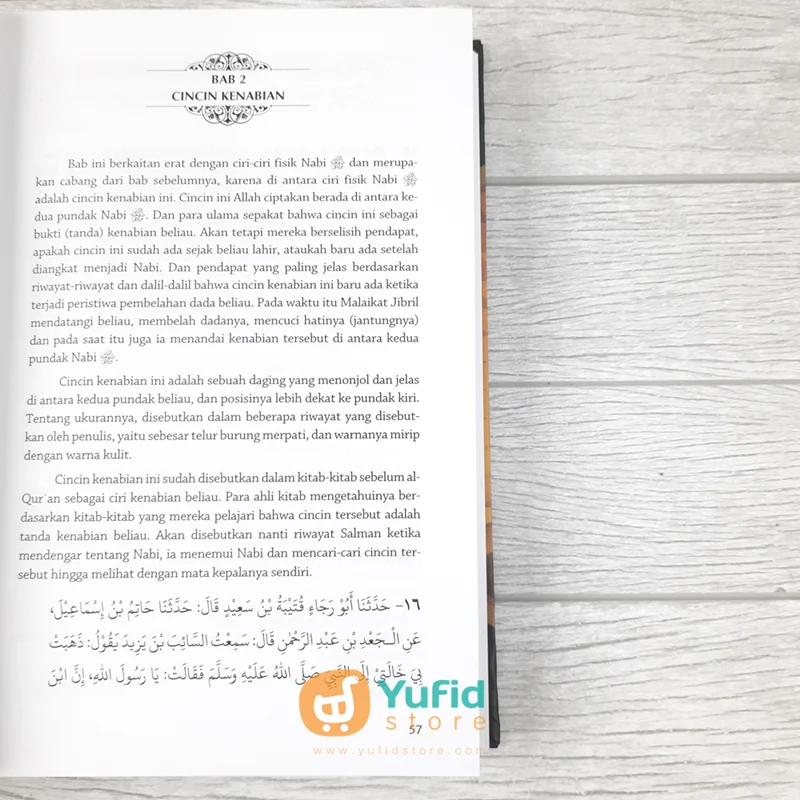 BAB 2
CINCIN KENABIAN
Bab ini berkaitan erat dengan ciri-ciri fisik Nabi ﷺ dan merupa-
kan cabang dari bab sebelumnya, karena di antara ciri fisik Nabi ﷺ
adalah cincin kenabian ini. Cincin ini Allah ciptakan berada di antara ke-
dua pundak Nabi ﷺ. Dan para ulama sepakat bahwa cincin ini sebagai
bukti (tanda) kenabian beliau. Akan tetapi mereka berselisih pendapat,
apakah cincin ini sudah ada sejak beliau lahir, ataukah baru ada setelah
diangkat menjadi Nabi. Dan pendapat yang paling jelas berdasarkan
riwayat-riwayat dan dalil-dalil bahwa cincin kenabian ini baru ada ketika
terjadi peristiwa pembelahan dada beliau. Pada waktu itu Malaikat Jibril
mendatangi beliau, membelah dadanya, mencuci hatinya (jantungnya)
dan pada saat itu juga ia menandai kenabian tersebut di antara kedua
pundak Nabi ﷺ.
Cincin kenabian ini adalah sebuah daging yang menonjol dan jelas
di antara kedua pundak beliau, dan posisinya lebih dekat ke pundak kiri.
Tentang ukurannya, disebutkan dalam beberapa riwayat yang disebut-
kan oleh penulis, yaitu sebesar telur burung merpati, dan warnanya mirip
dengan warna kulit.
Cincin kenabian ini sudah disebutkan dalam kitab-kitab sebelum al-
Qur`an sebagai ciri kenabian beliau. Para ahli kitab mengetahuinya ber-
dasarkan kitab-kitab yang mereka pelajari bahwa cincin tersebut adalah
tanda kenabian beliau. Akan disebutkan nanti riwayat Salman ketika
mendengar tentang Nabi, ia menemui Nabi dan mencari-cari cincin ter-
sebut hingga melihat dengan mata kepalanya sendiri.
١٦- حَدَّثَنَا أَبُوْ رَجَاءٍ قُتَيْبَةُ بْنُ سَعِيْدٍ قَالَ: حَدَّثَنَا حَاتِمُ بْنُ إِسْمَاعِيْلَ،
عَنِ الْـجَعْدِ بْنِ عَبْدِ الرَّحْمٰنِ قَالَ: سَمِعْتُ السَّائِبَ بْنَ يَزِيدَ يَقُوْلُ: ذَهَبَتْ
بِيْ خَالَتِيْ إِلَى النَّبِيِّ صَلَّى اللهُ عَلَيْهِ وَسَلَّمَ فَقَالَتْ: يَا رَسُولَ اللهِ، إِنَّ ابْنَ
Yufid
store
57
www.yufidstore.com